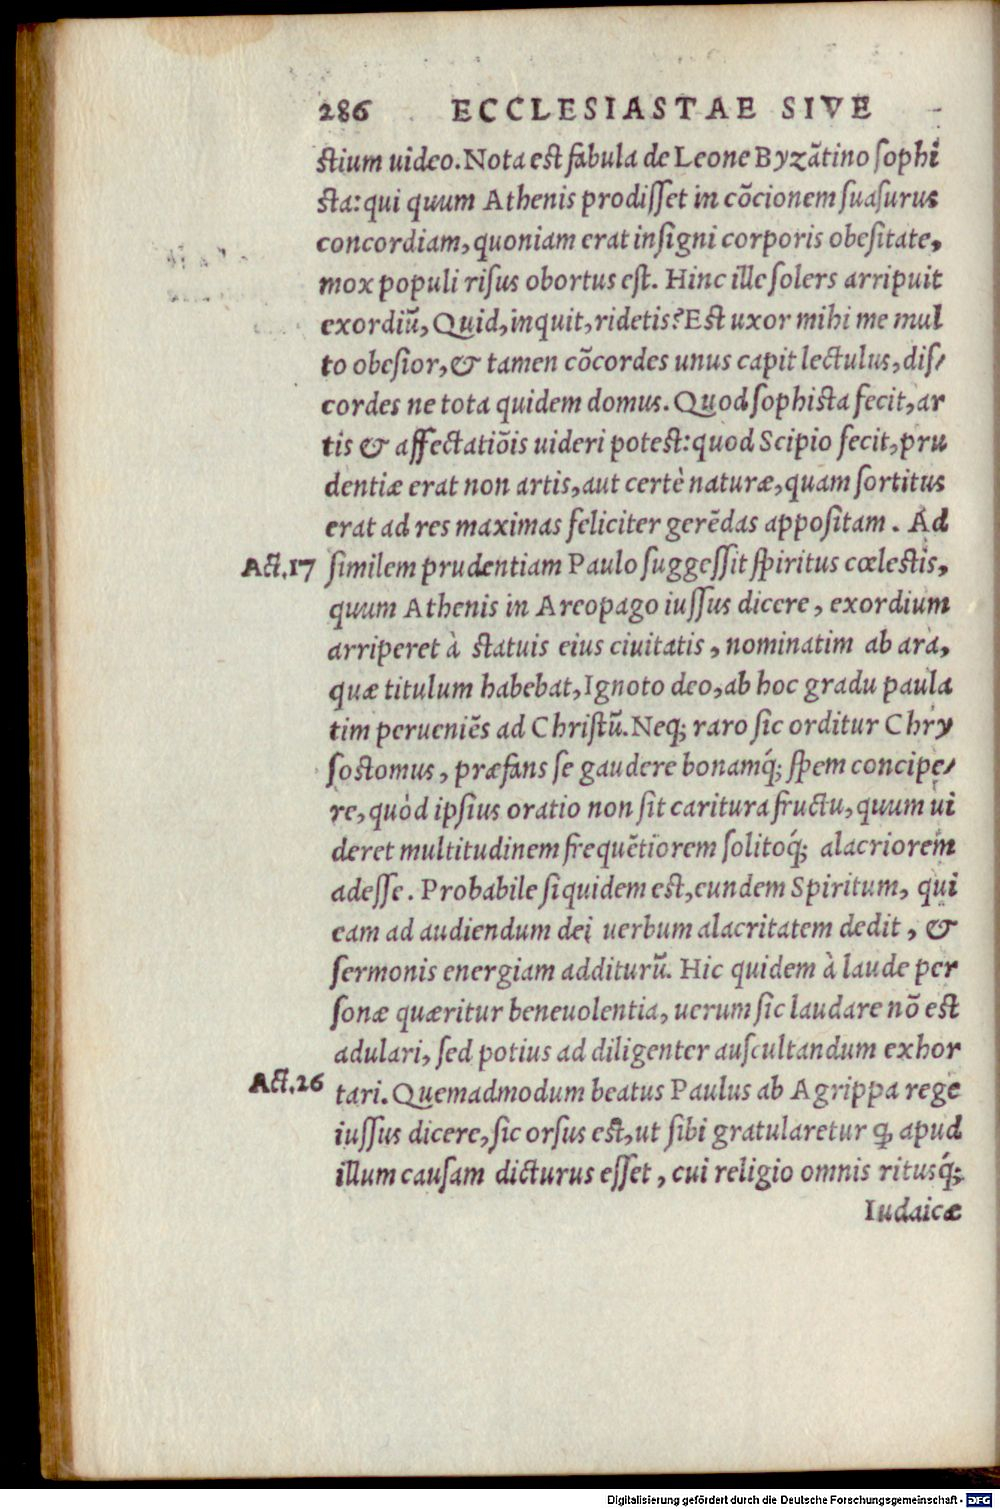 286 ECCLESIASTAE SIVE
stium uideo. Nota est fabula de Leone Byzãtino sophi
sta: qui quum Athenis prodisset in cõcionem suasurus
concordiam, quoniam erat insigni corporis obesitate,
mox populi risus obortus est. Hinc ille solers arripuit
exordiũ, Quid, inquit, ridetis? Est uxor mihi me mul
to obesior, & tamen cõcordes unus capit lectulus, dis/
cordes ne tota quidem domus. Quod sophista fecit, ar
tis & affectatiõis uideri potest: quod Scipio fecit, pru
dentiæ erat non artis, aut certè naturæ, quam sortitus
erat ad res maximas feliciter gerẽdas appositam. Ad
Act. 17 similem prudentiam Paulo suggessit spiritus cœlestis,
quum Athenis in Areopago iussus dicere, exordium
arriperet à statuis eius ciuitatis, nominatim ab ara,
quæ titulum habebat, Ignoto deo, ab hoc gradu paula
tim perueniẽs ad Christũ. Neq; raro sic orditur Chry
sostomus, præfans se gaudere bonamq́; spem concipe/
re, quòd ipsius oratio non sit caritura fructu, quum ui
deret multitudinem frequẽtiorem solitoq́; alacriorem
adesse. Probabile siquidem est, eundem Spiritum, qui
eam ad audiendum dei uerbum alacritatem dedit, &
sermonis energiam additurũ. Hic quidem à laude per
sonæ quæritur beneuolentia, uerum sic laudare nõ est
adulari, sed potius ad diligenter auscultandum exhor
Act. 26 tari. Quemadmodum beatus Paulus ab Agrippa rege
iussus dicere, sic orsus est, ut sibi gratularetur ꝙ apud
illum causam dicturus esset, cui religio omnis ritusq́;
Iudaicæ
Digitalisierung gefördert durch die Deutsche Forschungsgemeinschaft - DFG